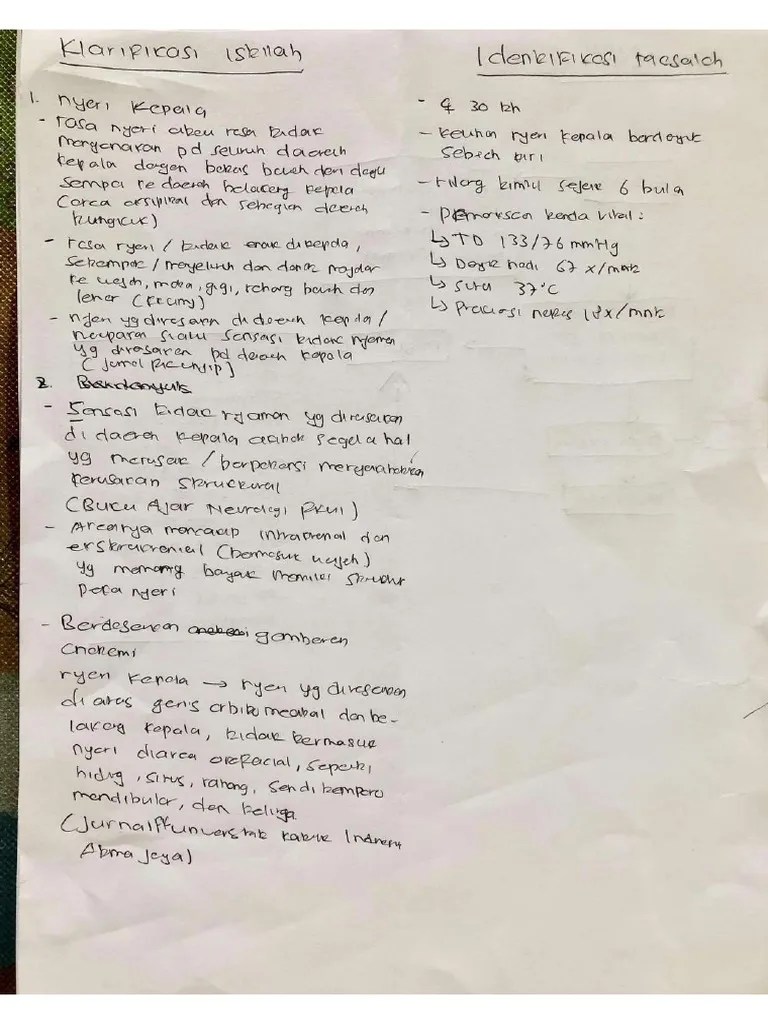 Klarifikasi istilah
1. nyeri kepala
- rasa nyeri atau rasa tidak
mengenakan pd seluruh daerah
kepala dengan batas bawah dari dagu
sampai ke daerah belakang kepala
(area oksipital dan sebagian daerah
tengkuk)
- rasa nyeri / tidak enak di kepala,
setempat / menyeluruh dan dapat menjalar
ke wajah, mata, gigi, rahang bawah dan
leher
- nyeri yg dirasakan di daerah kepala /
merupakan suatu sensasi tidak nyaman
yg dirasakan pd daerah kepala
2.
- Sensasi tidak nyaman yg dirasakan
di daerah kepala akibat segala hal
yg merusak / berpotensi menyebabkan
kerusakan struktural
(Buku Ajar Neurologi FKUI)
- Areanya mencakup intrakranial dan
ekstrakranial (termasuk wajah)
yg memang banyak memiliki struktur
peka nyeri
- Berdasarkan gambaran
anatomi
nyeri kepala → nyeri yg dirasakan
di atas garis orbitomeatal dan be-
lakang kepala, tidak termasuk
nyeri diarea orofacial, seperti
hidung, sinus, rahang, sendi temporo
mandibular, dan telinga.
(Jurnal universitas katolik Indonesia
Atma jaya)
Identifikasi masalah
- 30 th
- keluhan nyeri kepala berdenyut
sebelah kiri
- hilang timbul sejak 6 bulan
- Pemeriksaan tanda vital :
↳ TD 133/76 mmHg
↳ Denyut nadi 67 x/mnt
↳ suhu 37°C
↳ napas 18x/mnt